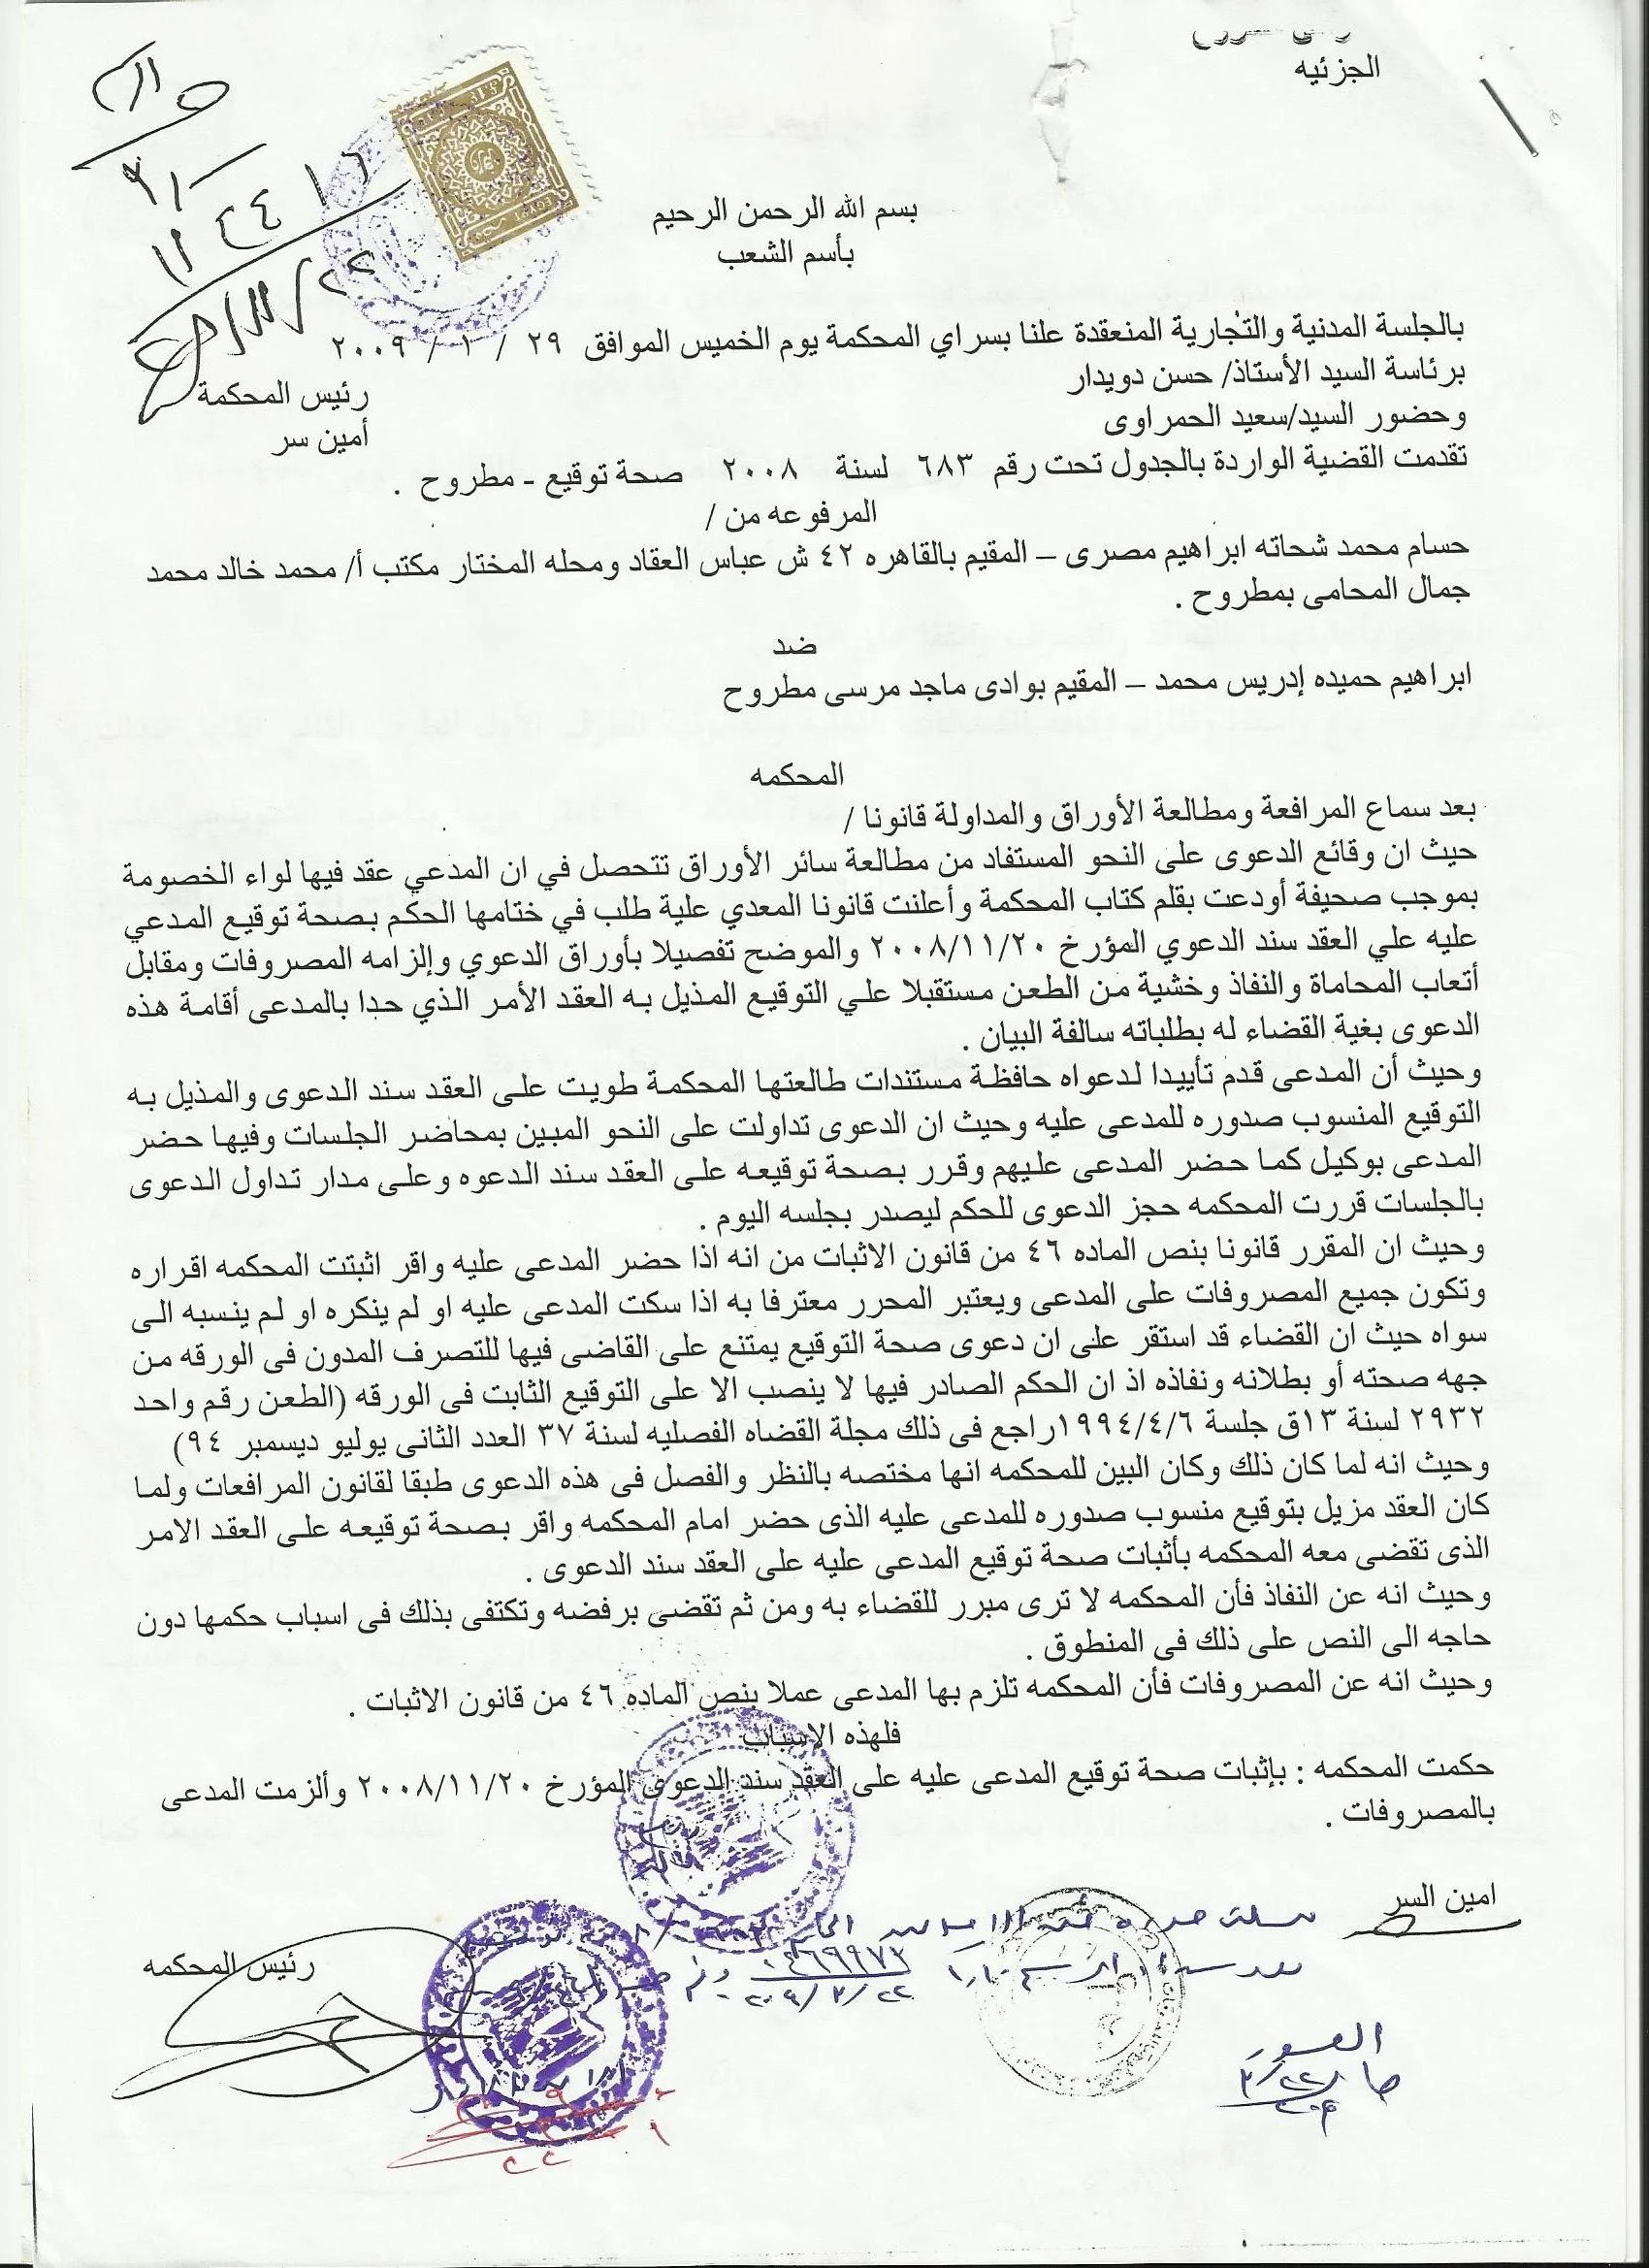 الجزئيه
بسم الله الرحمن الرحيم
بأسم الشعب
بالجلسة المدنية والتجارية المنعقدة علنا بسراي المحكمة يوم الخميس الموافق ٢٩ / ١ / ٢٠٠٩
برئاسة السيد الأستاذ/ حسن دويدار
رئيس المحكمة
وحضور السيد/سعيد الحمراوى
أمين سر
تقدمت القضية الواردة بالجدول تحت رقم ٦٨٣ لسنة ٢٠٠٨ صحة توقيع - مطروح .
المرفوعه من /
حسام محمد شحاته ابراهيم مصرى – المقيم بالقاهره ٤٢ ش عباس العقاد ومحله المختار مكتب أ/ محمد خالد محمد
جمال المحامى بمطروح .
ضد
ابراهيم حميده إدريس محمد – المقيم بوادى ماجد مرسى مطروح
المحكمه
بعد سماع المرافعة ومطالعة الأوراق والمداولة قانونا /
حيث ان وقائع الدعوى على النحو المستفاد من مطالعة سائر الأوراق تتحصل في ان المدعي عقد فيها لواء الخصومة
بموجب صحيفة أودعت بقلم كتاب المحكمة وأعلنت قانونا المعدي علية طلب في ختامها الحكم بصحة توقيع المدعي
عليه علي العقد سند الدعوي المؤرخ ٢٠٠٨/١١/٢٠ والموضح تفصيلا بأوراق الدعوي وإلزامه المصروفات ومقابل
أتعاب المحاماة والنفاذ وخشية من الطعن مستقبلا علي التوقيع المذيل به العقد الأمر الذي حدا بالمدعى أقامة هذه
الدعوى بغية القضاء له بطلباته سالفة البيان .
وحيث أن المدعى قدم تأييدا لدعواه حافظة مستندات طالعتها المحكمة طويت على العقد سند الدعوى والمذيل به
التوقيع المنسوب صدوره للمدعى عليه وحيث ان الدعوى تداولت على النحو المبين بمحاضر الجلسات وفيها حضر
المدعى بوكيل كما حضر المدعى عليهم وقرر بصحة توقيعه على العقد سند الدعوه وعلى مدار تداول الدعوى
بالجلسات قررت المحكمه حجز الدعوى للحكم ليصدر بجلسه اليوم .
وحيث ان المقرر قانونا بنص الماده ٤٦ من قانون الاثبات من انه اذا حضر المدعى عليه واقر اثبتت المحكمه اقراره
وتكون جميع المصروفات على المدعى ويعتبر المحرر معترفا به اذا سكت المدعى عليه او لم ينكره او لم ينسبه الى
سواه حيث ان القضاء قد استقر على ان دعوى صحة التوقيع يمتنع على القاضى فيها للتصرف المدون فى الورقه من
جهه صحته أو بطلانه ونفاذه اذ ان الحكم الصادر فيها لا ينصب الا على التوقيع الثابت فى الورقه (الطعن رقم واحد
٢٩٣٢ لسنة ١٣ق جلسة ١٩٩٤/٤/٦راجع فى ذلك مجلة القضاه الفصليه لسنة ٣٧ العدد الثانى يوليو ديسمبر ٩٤)
وحيث انه لما كان ذلك وكان البين للمحكمه انها مختصه بالنظر والفصل فى هذه الدعوى طبقا لقانون المرافعات ولما
كان العقد مزيل بتوقيع منسوب صدوره للمدعى عليه الذى حضر امام المحكمه واقر بصحة توقيعه على العقد الامر
الذى تقضى معه المحكمه بأثبات صحة توقيع المدعى عليه على العقد سند الدعوى .
وحيث انه عن النفاذ فأن المحكمه لا ترى مبرر للقضاء به ومن ثم تقضى برفضه وتكتفى بذلك فى اسباب حكمها دون
حاجه الى النص على ذلك فى المنطوق .
وحيث انه عن المصروفات فأن المحكمه تلزم بها المدعى عملا بنص الماده ٤٦ من قانون الاثبات .
فلهذه الإسباب
حكمت المحكمه : بإثبات صحة توقيع المدعى عليه على العقد سند الدعوى المؤرخ ٢٠٠٨/١١/٢٠ وألزمت المدعى
بالمصروفات .
امين السر
رئيس المحكمه